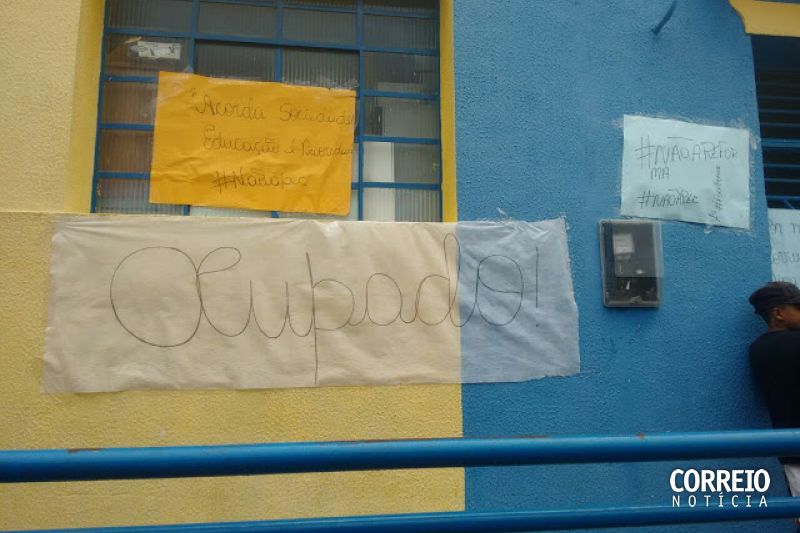 "Acorda Sociedade
Educação é Prioridade
#Nãoàpec
Ocupado!
#NÃOAREFOR
MA
#NÃOAPEC
CORREIO
NOTÍCIA